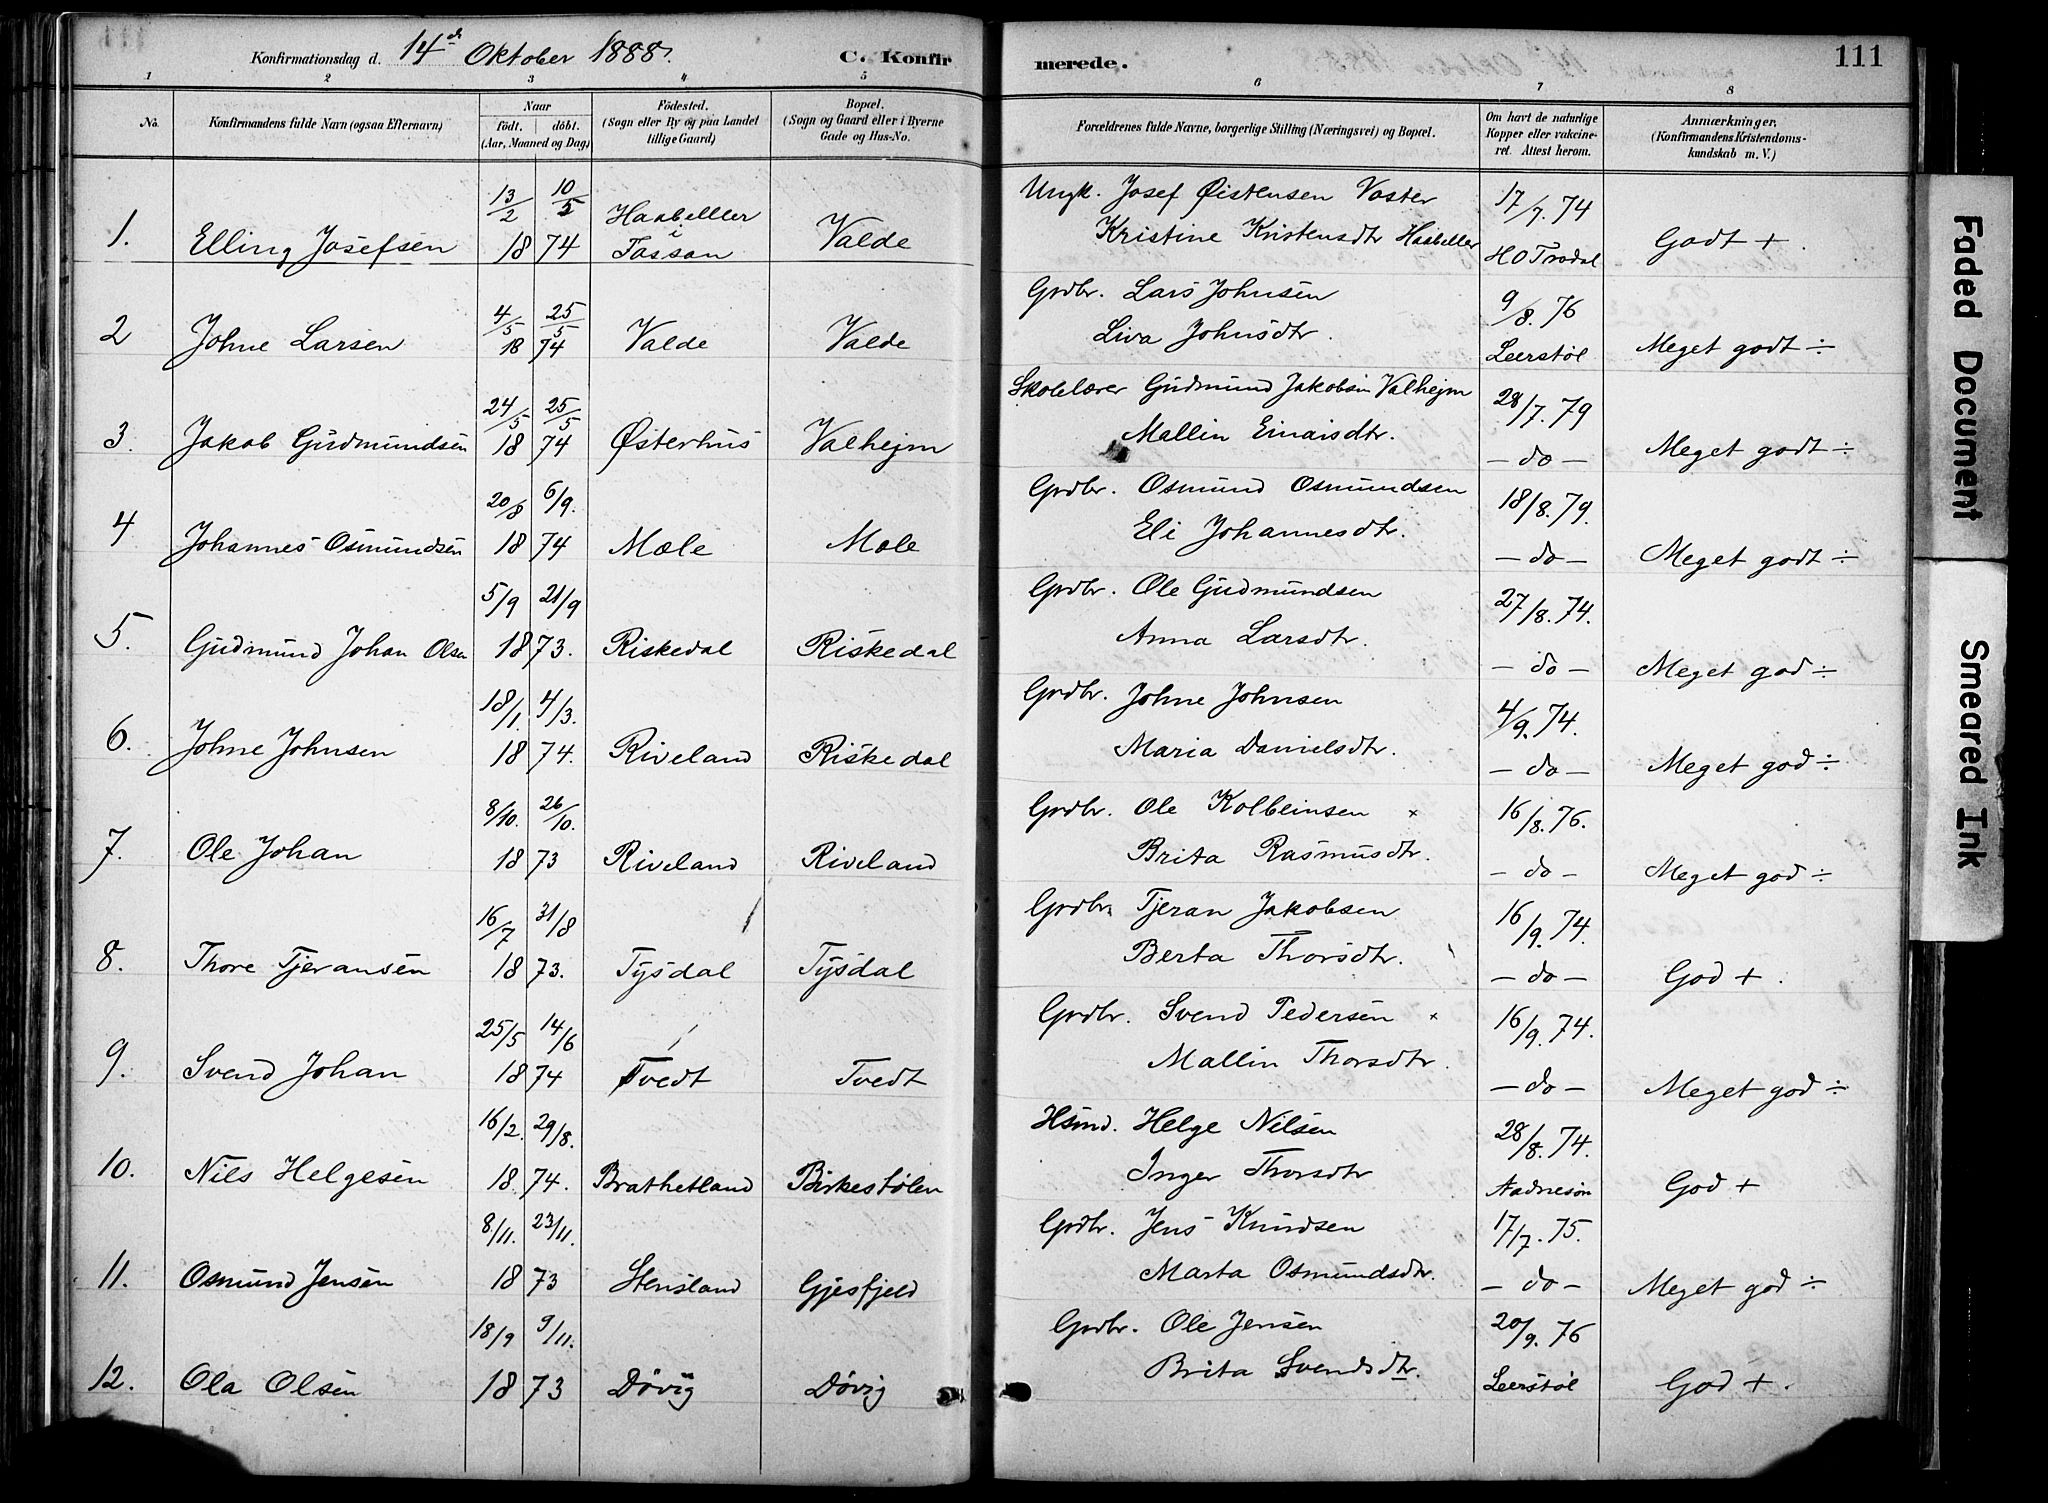 Konfirmationsdag d. 14de Oktober 1888. C. Konfirmerede. 111
1 2 3 4 5 6 7 8
No. Konfirmandens fulde Navn (ogsaa Efternavn) Naar födt. döbt. (Aar, Maaned og Dag) Födested. (Sogn eller By og paa Landet tillige Gaard) Bopæl. (Sogn og Gaard eller i Byerne Gade og Hus-No. Forældrenes fulde Navne, borgerlige Stilling (Næringsvei) og Bopæl. Om havt de naturlige Kopper eller vakcineret. Attest herom. Anmærkninger, (Konfirmandens Kristendomskundskab m. V.)
13/2 10/5 Haabeller i Ungk. Josef Øistensen Voster 17/7. 74
1. Elling Josefsen 18 74 Fossan Valde Kristine Kristensdtr Haabeller HO Trodal Godt + .
4/5 25/5 Grdbr. Lars Johnsen 9/8. 76
2 Johne Larsen 18 74 Valde Valde Liva Johnsdtr. Leerstøl Meget godt ÷
24/5 25/5 Skolelærer Gudmund Jakobsen Valhejm 28/7. 79
3. Jakob Gudmundsen 18 74 Østerhus Valhejm Mallin Einarsdtr. - do - Meget godt ÷
20/8 6/9. Grdbr. Osmund Osmundsen 18/8. 79.
4 Johannes Osmundsen 18 74 Mæle Mæle Eli Johannesdtr. - do - Meget godt ÷
5/9 21/9 Grdbr. Ole Gudmundsen 27/8. 74.
5. Gudmund Johan Olsen 18 73. Riskedal Riskedal Anna Larsdtr. - do - Meget god ÷
18/1. 4/3. Grdbr. Johne Johnsen 4/9. 74.
6. Johne Johnsen 18 74. Riveland Riskedal Maria Danielsdtr. - do - Meget god ÷
8/10. 26/10. Grdbr. Ole Kolbeinsen × 16/8. 76.
7. Ole Johan 18 73 Riveland Riveland Brita Rasmusdtr. - do - Meget god ÷
16/7 31/8 Grdbr. Tjeran Jakobsen 16/9. 74.
8. Thore Tjeransen 18 73. Tysdal Tysdal Berta Thorsdtr. - do - God + .
25/5 14/6 Grdbr. Svend Pedersen × 16/9. 74.
9. Svend Johan 18 74 Tvedt Tvedt Mallin Thorsdtr. - do - Meget god ÷
16/2. 29/8. Hsmd. Helge Nilsen 28/8. 74.
10. Nils Helgesen 18 74. Brathetland Birkestølen Inger Thorsdtr Aadnesøn God +
8/11. 23/11. Grdbr. Jens Knudsen 17/7. 75.
11. Osmund Jensen 18 73 Stensland Gjesfjeld Marta Osmundsdtr. - do - Meget god ÷
18/9 9/11. Grdbr. Ole Jensen 20/9. 76
12. Ola Olsen 18 73 Døvig Døvig Brita Svendsdtr. Leerstøl God + .
Faded Document
Smeared Ink